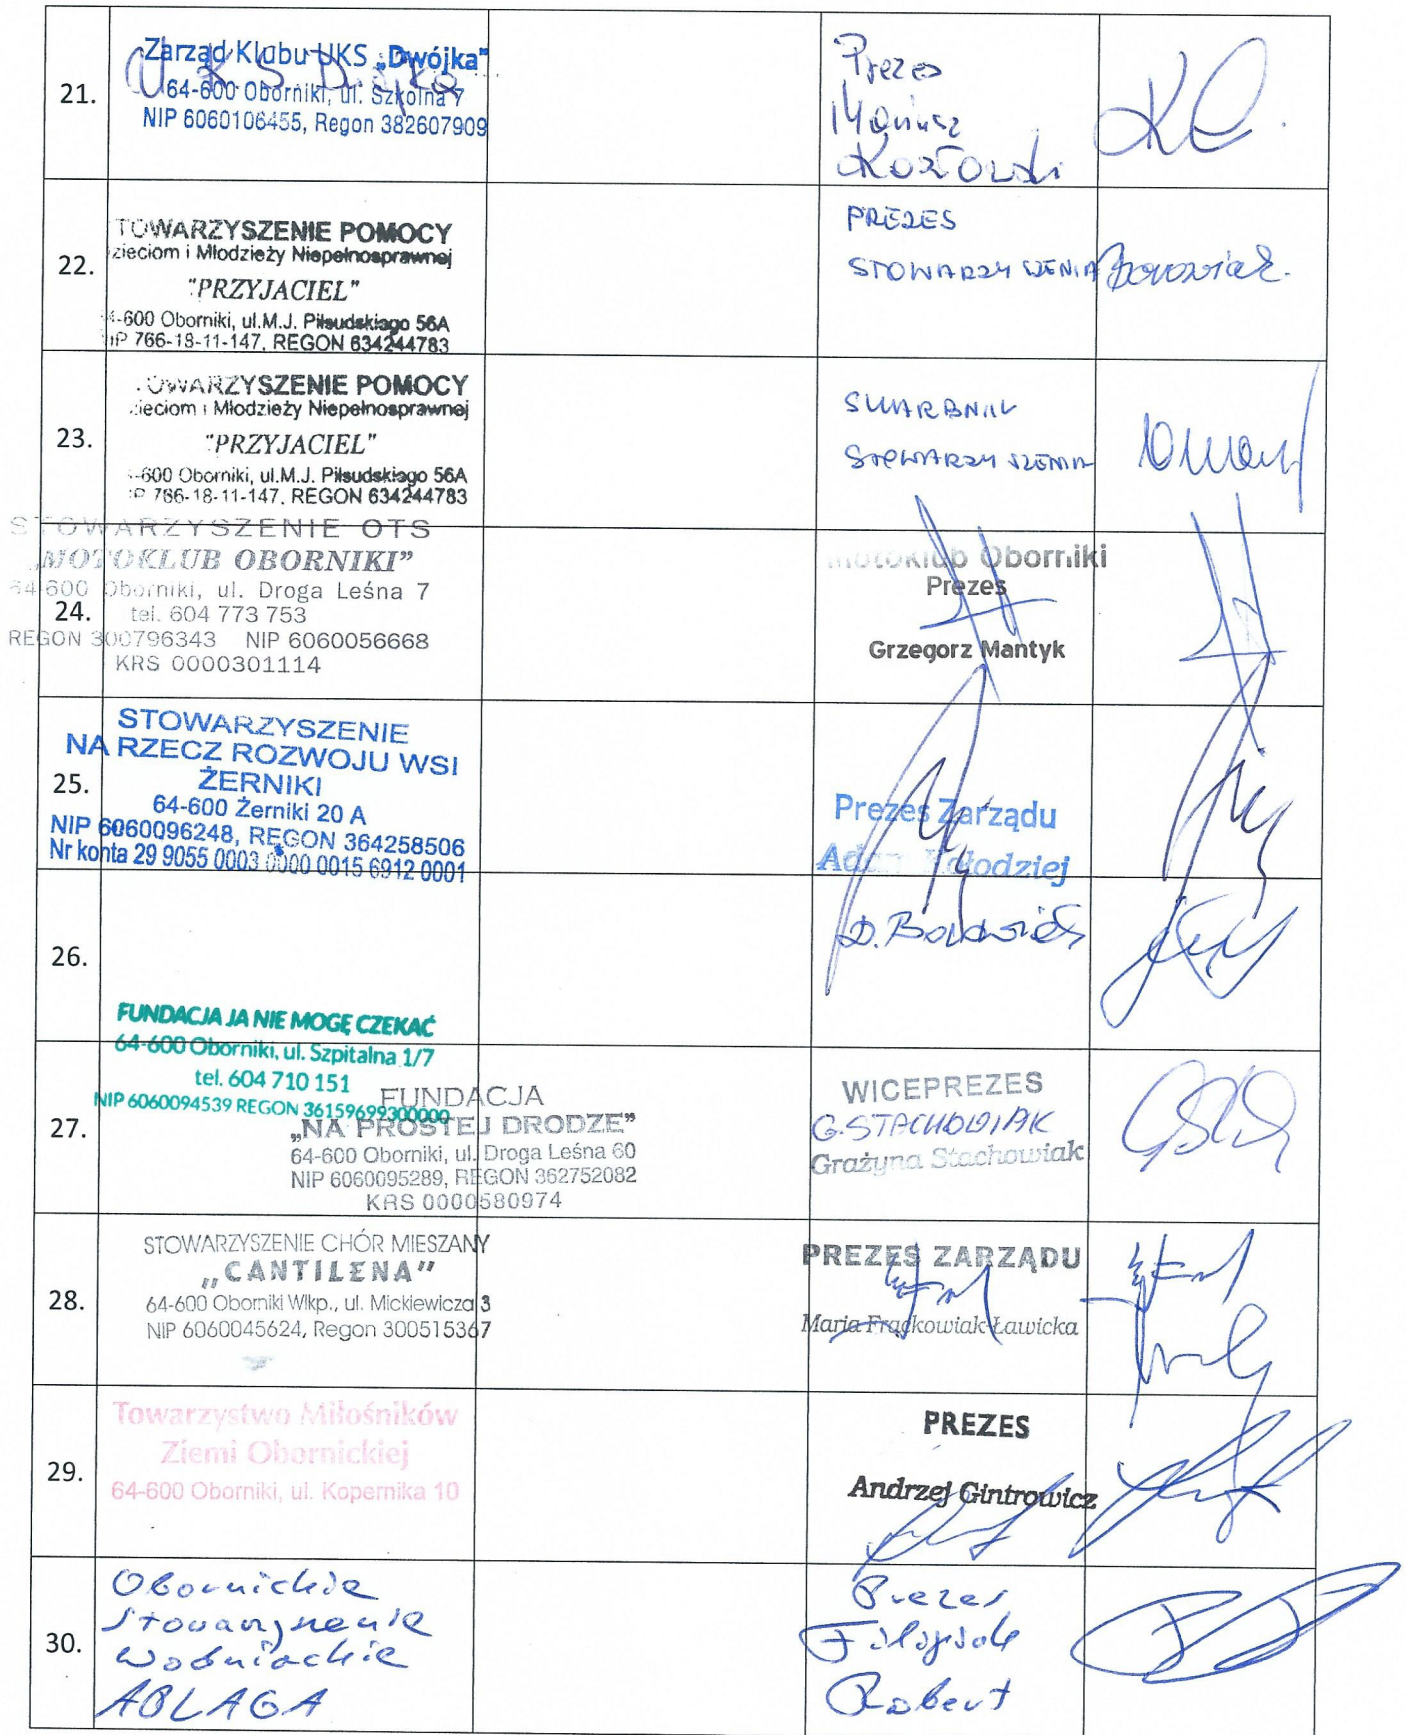 21.
Zarząd Klubu UKS „Dwójka"
U K S Dwójka
64-600 Oborniki, ul. Szkolna 7
NIP 6060106455, Regon 382607909
Prezes
Mariusz
Kozłowski
22.
TOWARZYSZENIE POMOCY
zieciom i Młodzieży Niepełnosprawnej
"PRZYJACIEL"
-600 Oborniki, ul.M.J. Piłsudskiego 56A
IP 766-18-11-147, REGON 634244783
PREZES
STOWARZYSZENIA
23.
OWARZYSZENIE POMOCY
ieciom i Młodzieży Niepełnosprawnej
"PRZYJACIEL"
-600 Oborniki, ul.M.J. Piłsudskiego 56A
IP 766-18-11-147, REGON 634244783
SKARBNIK
STOWARZYSZENIA
24.
STOWARZYSZENIE OTS
„MOTOKLUB OBORNIKI”
64-600 Oborniki, ul. Droga Leśna 7
tel. 604 773 753
REGON 300796343 NIP 6060056668
KRS 0000301114
Motoklub Oborniki
Prezes
Grzegorz Mantyk
25.
STOWARZYSZENIE
NA RZECZ ROZWOJU WSI
ŻERNIKI
64-600 Żerniki 20 A
NIP 6060096248, REGON 364258506
Nr konta 29 9055 0003 0000 0015 6912 0001
Prezes Zarządu
Adam Kołodziej
26.
FUNDACJA JA NIE MOGĘ CZEKAĆ
64-600 Oborniki, ul. Szpitalna 1/7
tel. 604 710 151
NIP 6060094539 REGON 36159699300000
D.
27.
FUNDACJA
„NA PROSTEJ DRODZE”
64-600 Oborniki, ul. Droga Leśna 60
NIP 6060095289, REGON 362752082
KRS 0000580974
WICEPREZES
G. STACHOWIAK
Grażyna Stachowiak
28.
STOWARZYSZENIE CHÓR MIESZANY
„CANTILENA”
64-600 Oborniki Wlkp., ul. Mickiewicza 3
NIP 6060045624, Regon 300515367
PREZES ZARZĄDU
Maria Frąckowiak-Ławicka
29.
Towarzystwo Miłośników
Ziemi Obornickiej
64-600 Oborniki, ul. Kopernika 10
PREZES
Andrzej Gintrowicz
30.
Obornickie
Stowarzyszenie
Wodniackie
ABLAGA
Prezes
Filipiak
Robert